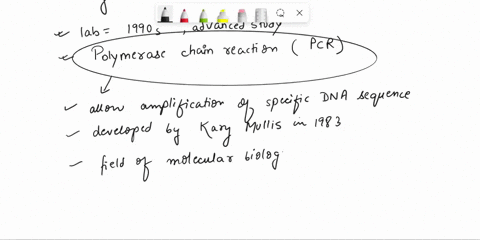 lab = 1990s, advanced study
Polymerase chain reaction (PCR)
allow amplification of specific DNA sequence
developed by Kary Mullis in 1983
field of molecular biolog